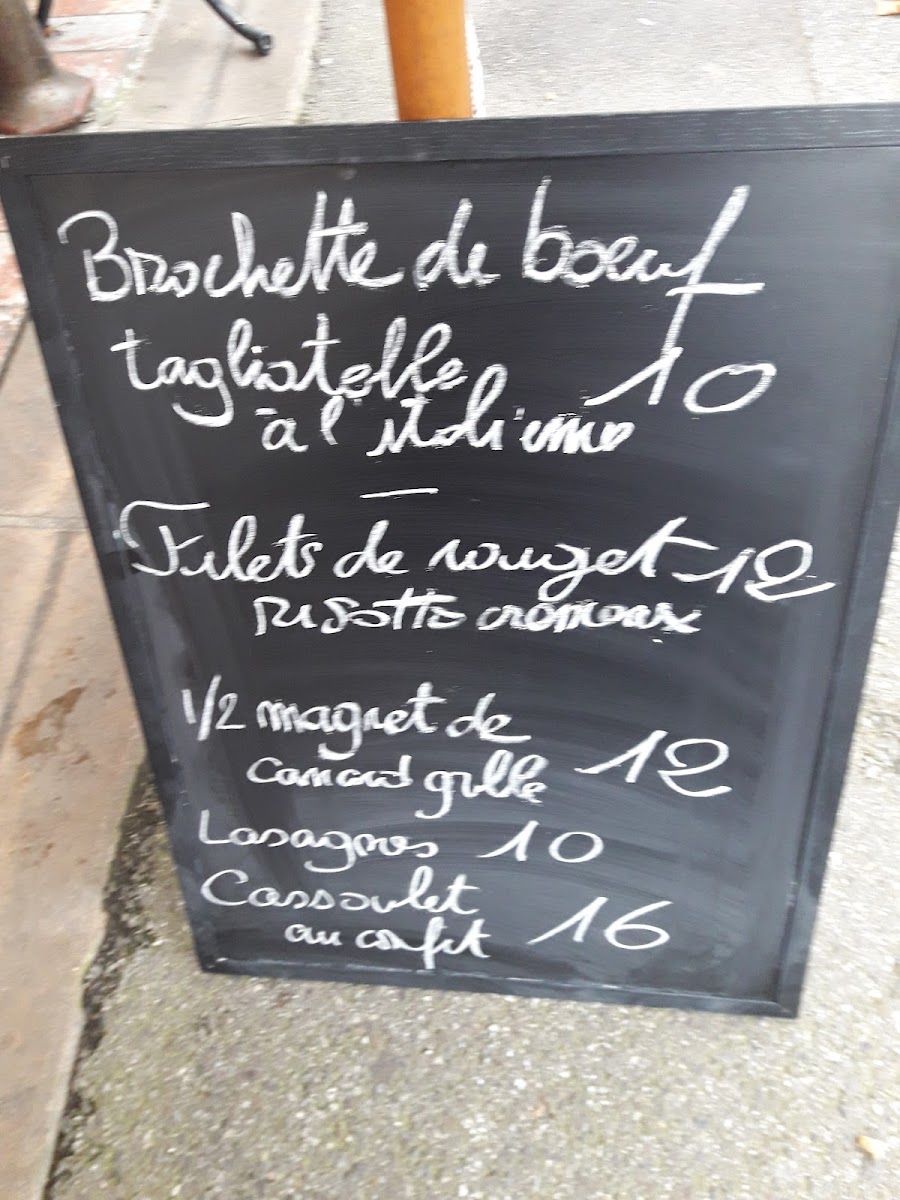 Brochette de boeuf
tagliatelle 10
à l'italienne
Filets de rouget 12
Risotto crémeux
1/2 magret de
canard grillé 12
Lasagnes 10
Cassoulet
au confit 16